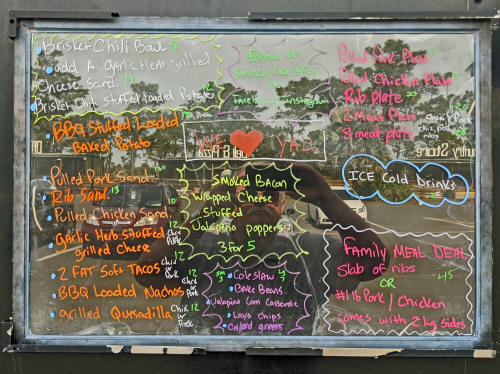 Brisket Chili Bowl 8
add A garlic Herb grilled
Cheese Sand. 11
Brisket Chili stuffed loaded Potato 12
BBQ Stuffed Loaded
Baked Potato
Pulled Pork Sand.
Rib Sand. 13
Pulled Chicken Sand. 10
Garlic Herb Stuffed 12
grilled Cheese Chix Pork
2 FAT Soft TACOS Chix Pork
BBQ Loaded Nachos Chix or Pork
grilled Quesadilla Chix or Pork 12
Follow us
Smokin
Facebook / instagram
WE ❤ Y'ALL
Smoked Bacon
Wrapped Cheese
Stuffed
Jalapeño poppers
3 for 5
Coleslaw
Bake Beans
Jalapeño Corn Casserole
Lays Chips
Collard greens
Pulled Pork Plate
Pulled Chicken Plate
Rib plate
2 Meat Plate
3 meat plate
ICE Cold Drinks
FAMILY MEAL DEAL
Slab of ribs
OR 45
#1 lb Pork / Chicken
comes with 2 kg sides